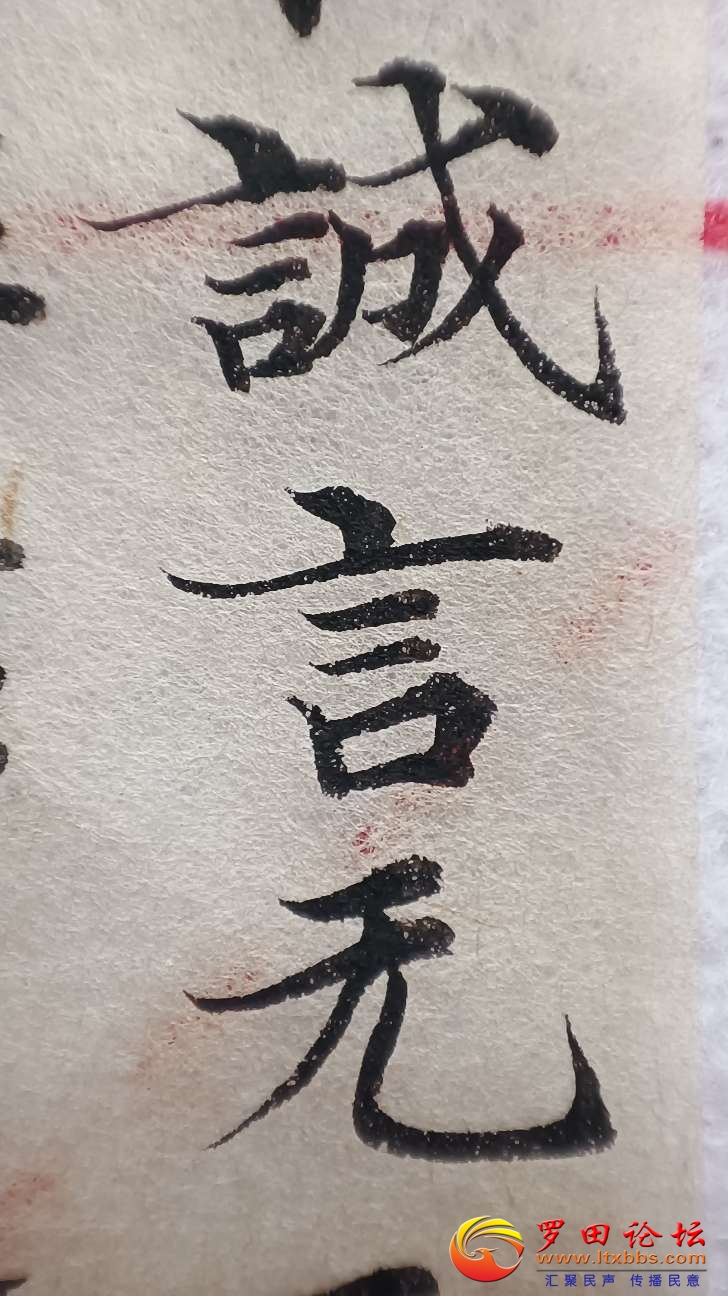 誠言无
罗田论坛
www.ltxbbs.com
汇聚民声 传播民意